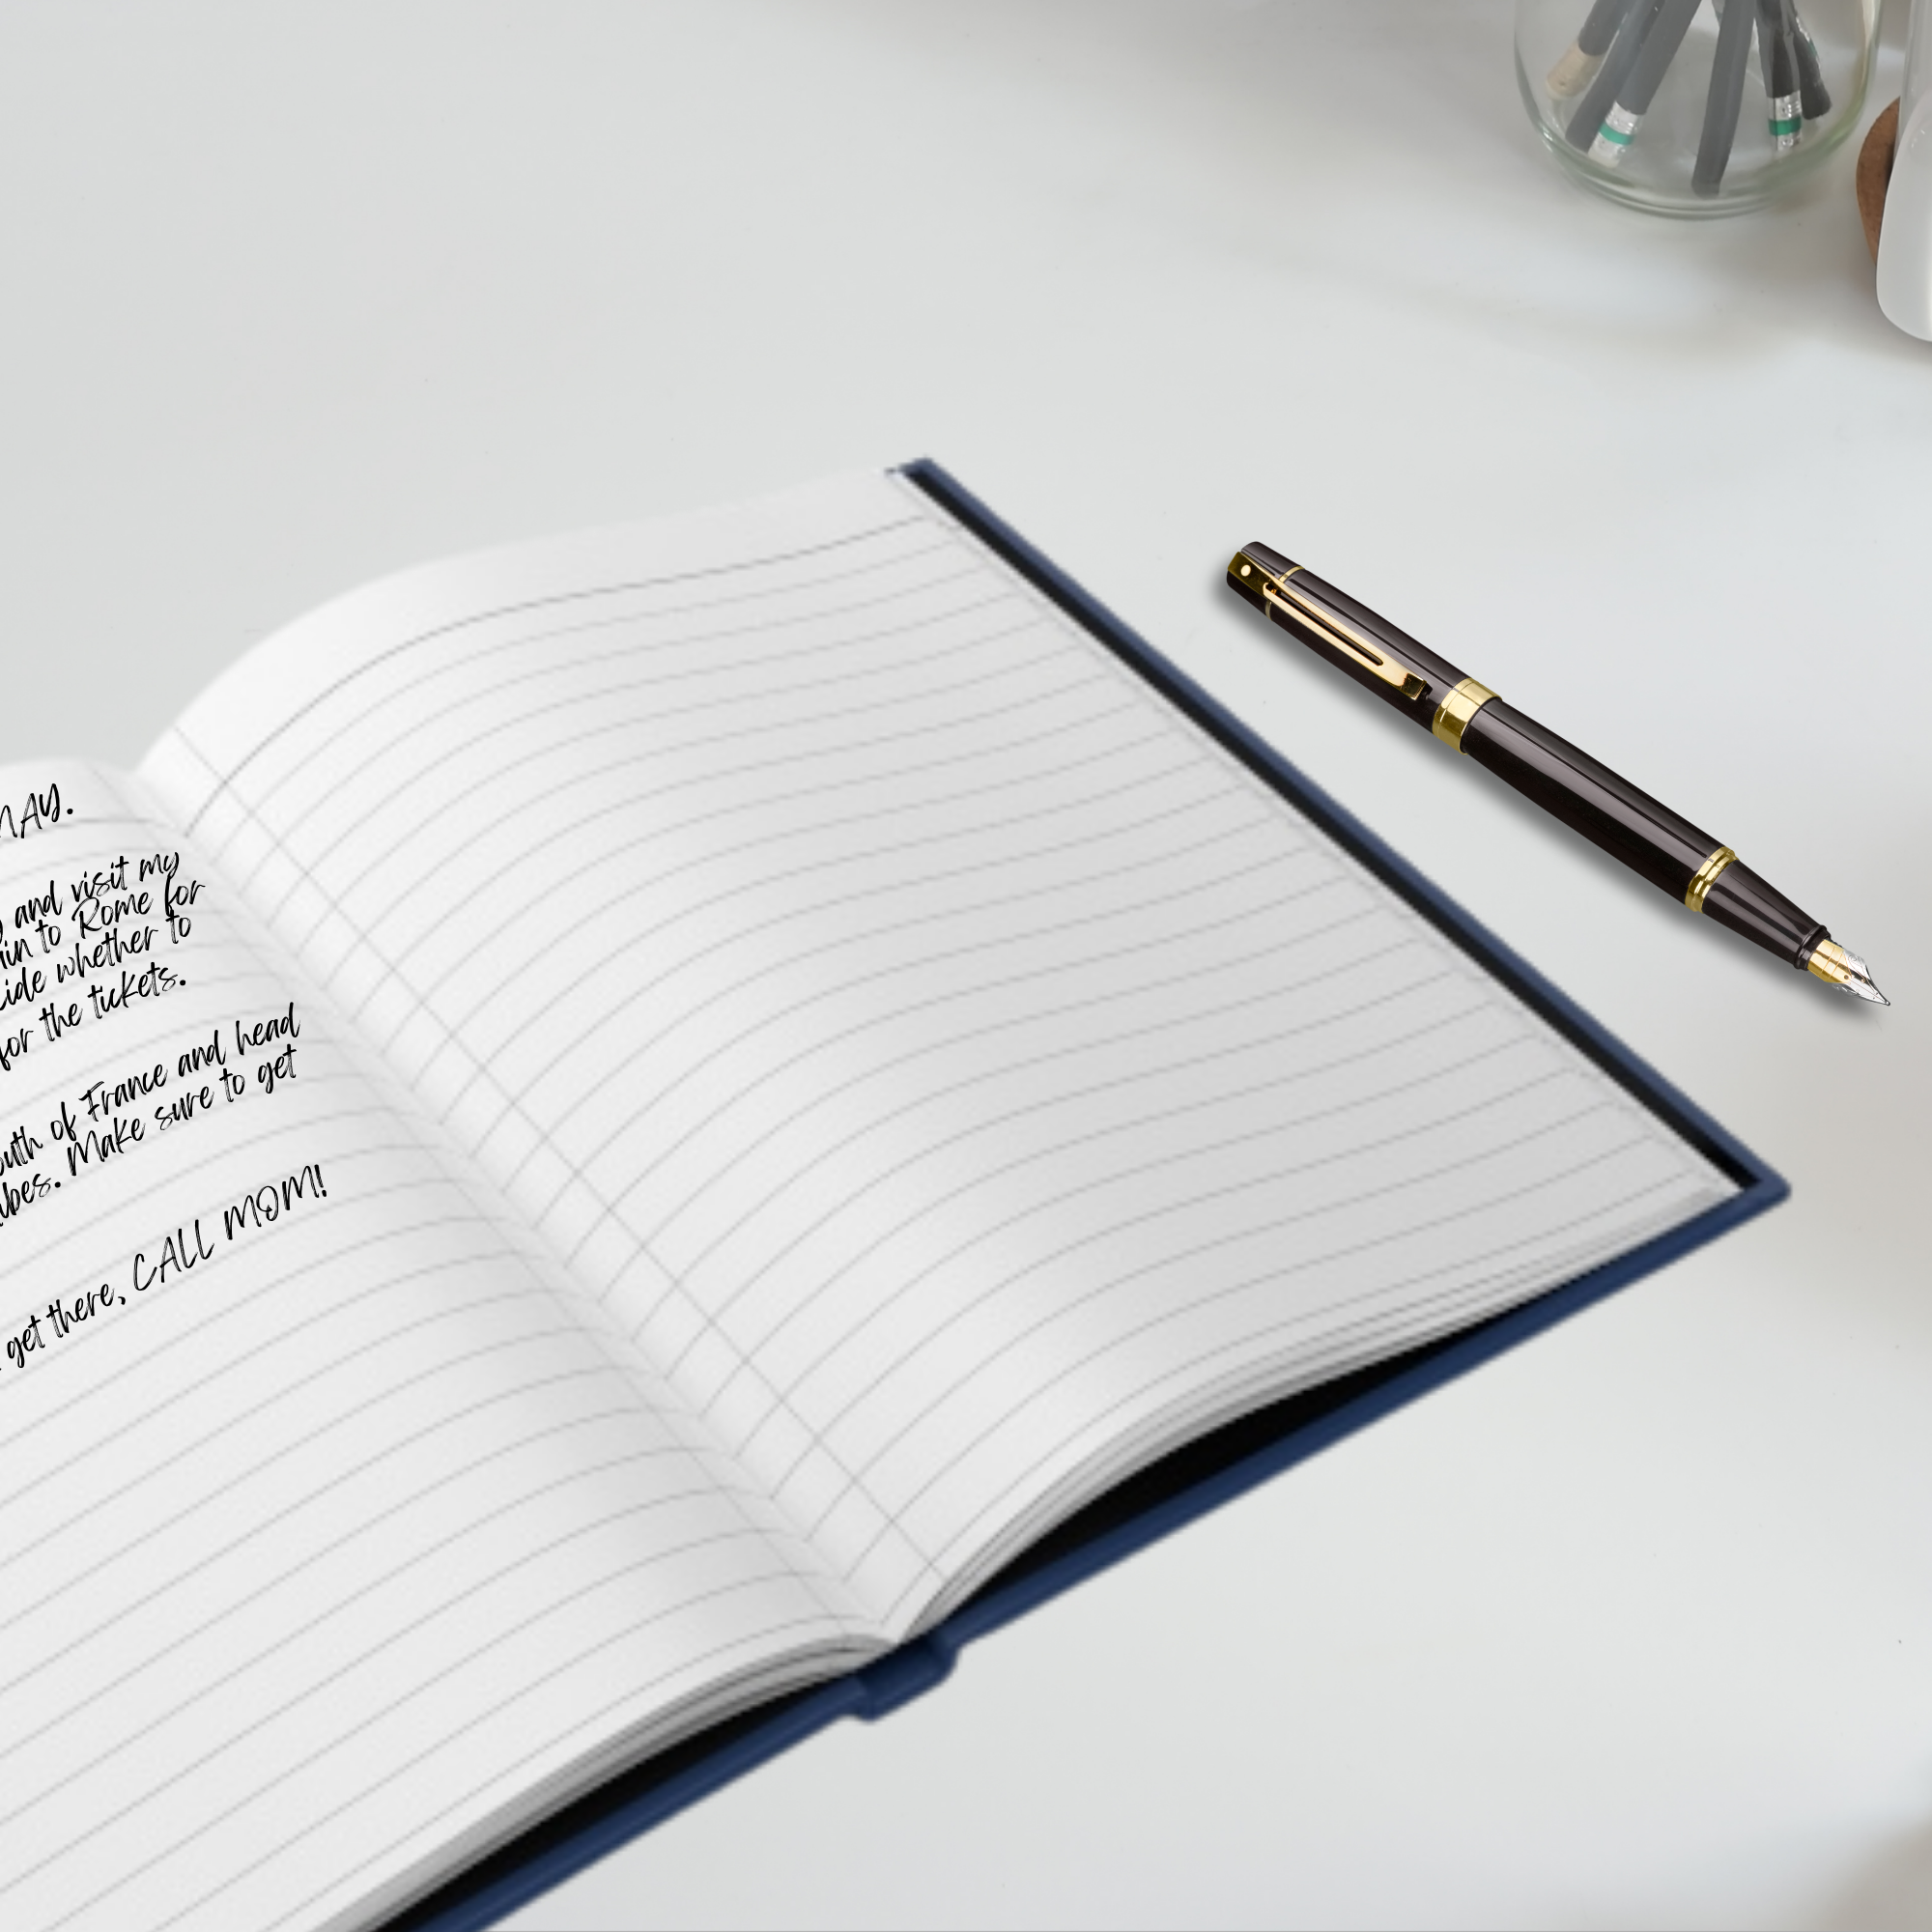 and visit my
to Rome for
whether to
for the tickets.
of France and head
Make sure to get
get there, CALL MOM!